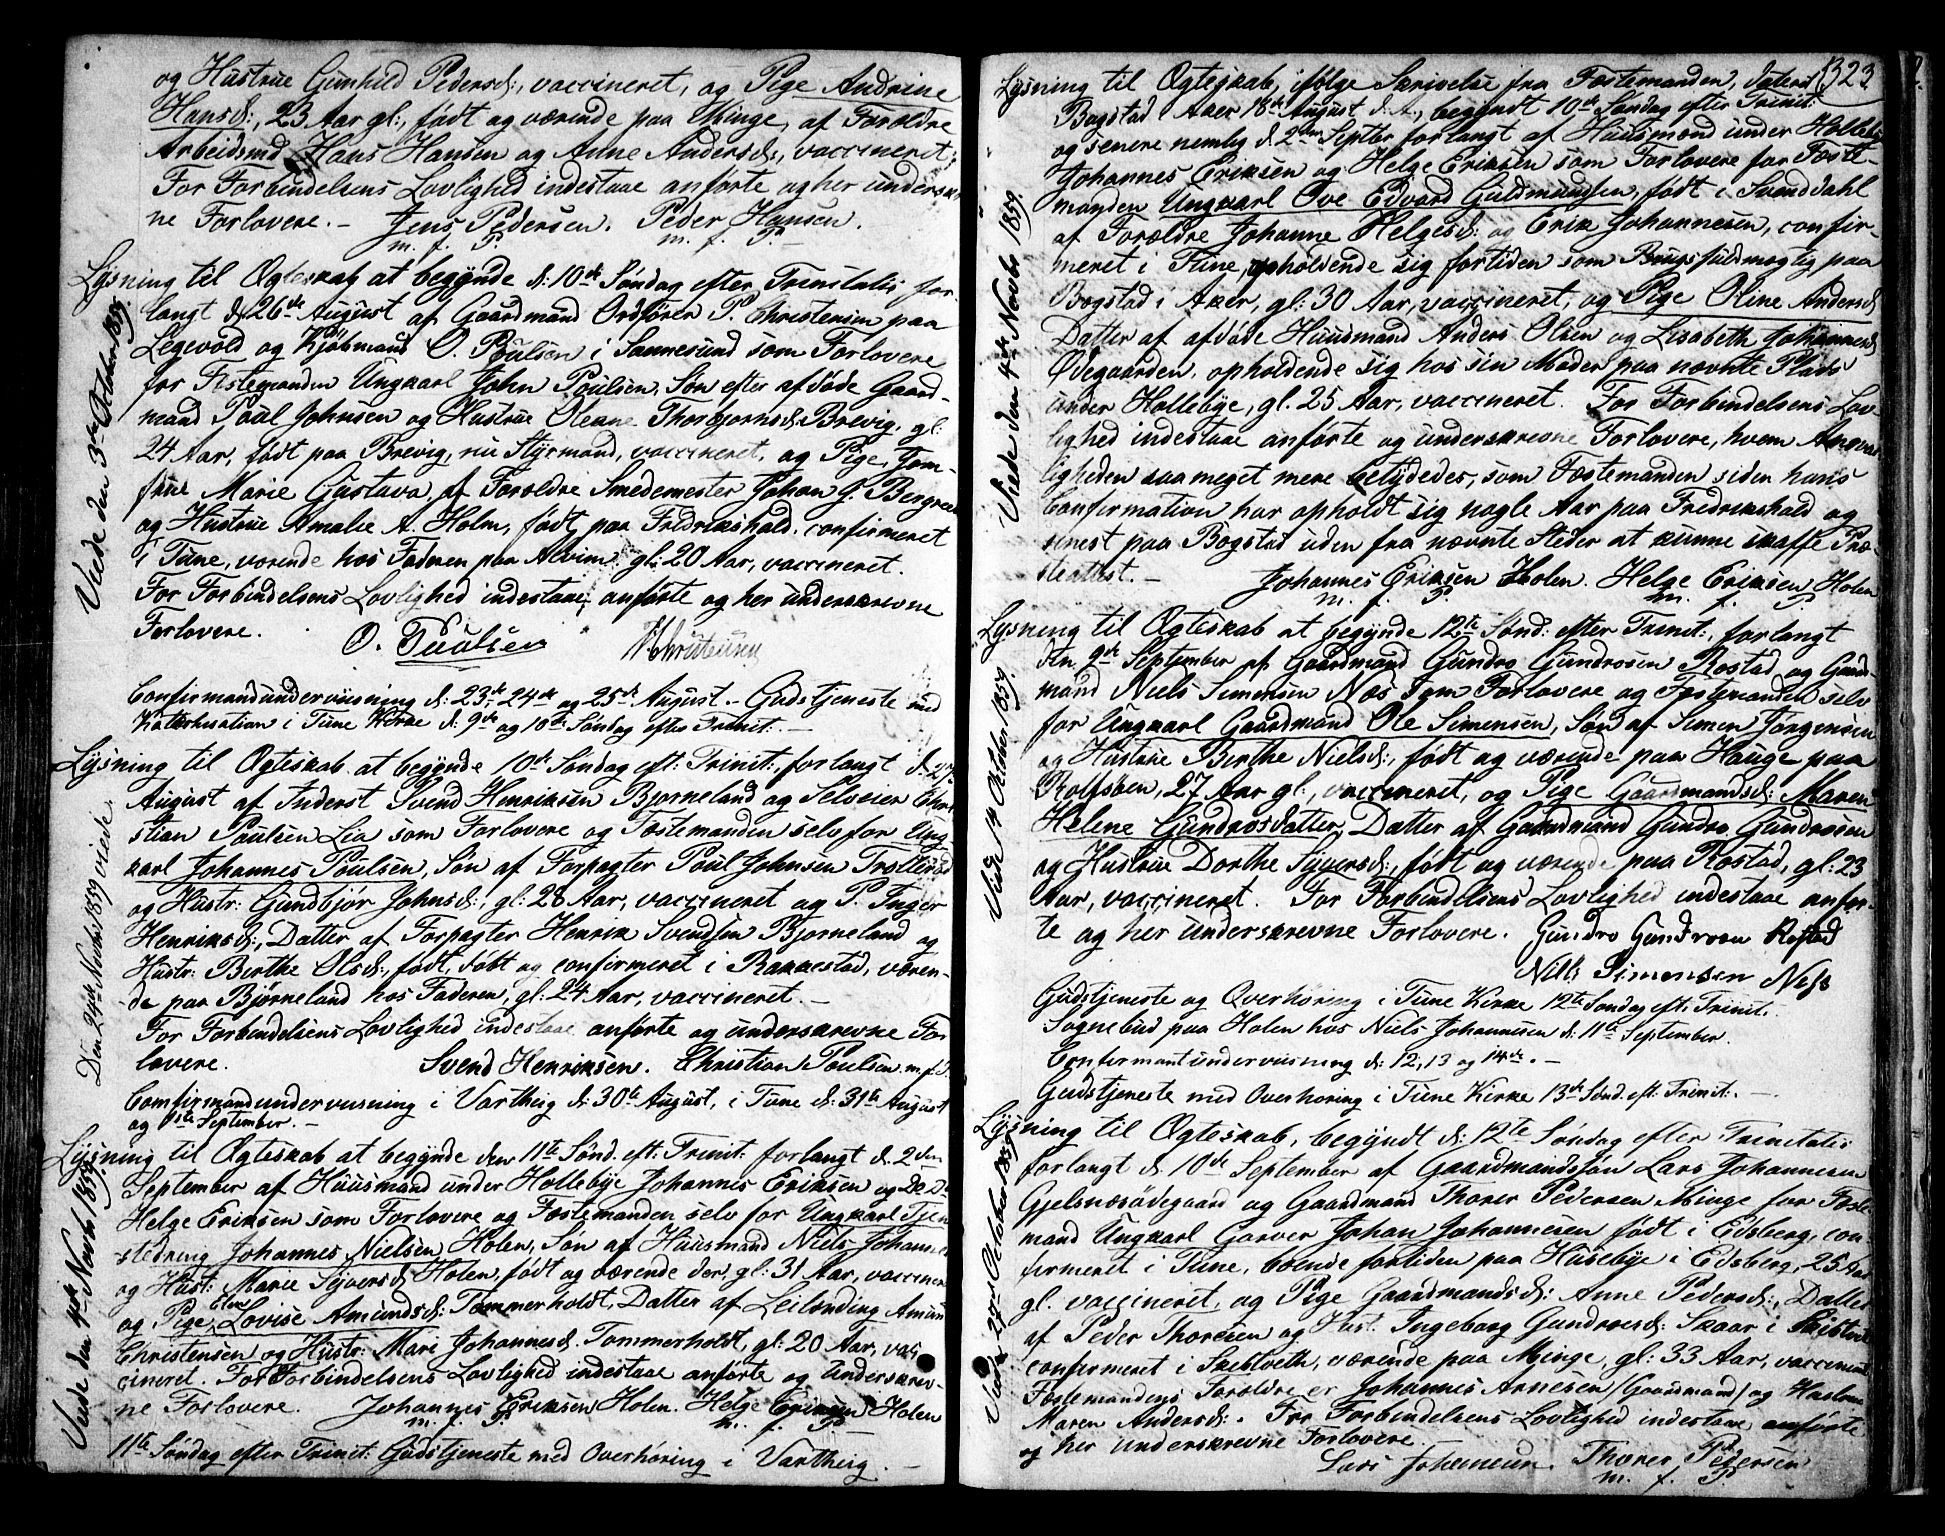 og Hustrue Gunhild Pedersd:, vaccineret, og Pige Andrine
Hansd:, 23 Aar gl:, født og værende paa Minge, af Forældre
Arbeidsmd Hans Hansen og Anne Andersd:, vaccineret.
For Forbindelsens Lovlighed indestaae anførte og her underskrev-
ne Forlovere. – Jens Pedersen. Peder Hansen.
m. f. P. m. f. P.
Lysning til Ægteskab at begynde d: 10de Søndag efter Trinitatis for-
langt d. 26de August af Gaardmand Ordfører P. Christensen paa
Legevold og Kjøbmand O. Poulsen i Sannesund som Forlovere
for Festemanden Ungkarl John Poulsen, Søn efter afdøde Gaard-
mand Poul Johnsen og Hustrue Oleane Thorbjørnsd: Brevig, gl:
24 Aar, født paa Brevig, nu Styrmand, vaccineret, og Pige, Jom-
frue Marie Gustava, af Forældre Smedemester Johan G. Bergreen
og Hustrue Amalie A. Holm, født paa Fredrikshald, confirmeret
i Tune, værende hos Faderen paa Alvim: gl: 20 Aar, vaccineret.
For Forbindelsens Lovlighed indestaae anførte og her underskrevne
Forlovere. O. Poulsen P. Christensen
Viede den 3die October 1859.
Confirmandundervisning d: 23de 24de og 25de August. – Gudstjeneste med
Katechisation i Tune Kirke d: 9de og 10de Søndag efter Trinit: –
Lysning til Ægteskab at begynde 10de Søndag eft: Trinit:, forlangt d. 27
August af Inderst Svend Henriksen Bjørneland og Selveier Chri-
stian Poulsen Lia som Forlovere og Fæstemanden selv for Ung-
karl Johannes Poulsen, Søn af Forpagter Poul Johnsen Trollerød
og Hustr: Gundbjør Johnsd:, gl: 28 Aar, vaccineret og P. Inger
Henriksd:, Datter af Forpagter Henrik Svendsen Bjørneland og
Hustr: Birthe Olsd:, født, døbt og confirmeret i Rakkestad, væren-
de paa Bjørneland hos Faderen, gl: 24 Aar, vaccineret. –
For Forbindelsens Lovlighed indestaae anførte og underskrevne For-
lovere. Svend Henriksen. Christian Poulsen m. f. P.
Den 24de Novbr 1859 viede.
Comfirmandundervisning i Vartheig d: 30te August, i Tune d: 31te August
og 1ste September. –
Lysning til Ægteskab at begynde den 11te Sønd. eft: Trinit: forlangt d. 2den
September af Huusmand under Hollebye Johannes Eriksen og D: D:
Helge Eriksen som Forlovere og Fæstemanden selv for Ungkarl Tjene-
stedreng Johannes Nielsen Holen, Søn af Huusmand Niels Johannes
og Hust: Marie Syversd: Holen, født og værende der, gl: 31 Aar, vaccineret
og Pige Elne Lovise Amundsd: Tømmerholdt, Datter af Leilænding Amund
Christensen og Hustr: Mari Johannesd: Tømmerholdt, gl: 20 Aar, vac-
cineret. For Forbindelsens Lovlighed indestaae anførte og underskrev-
ne Forlovere. Johannes Eriksen Holen. Helge Eriksen Holen
m. f. P. m. f. P.
Viede den 4de Novbr 1859.
11te Søndag efter Trinit: Gudstjeneste med Overhøring i Vartheig. –
323
Lysning til Ægteskab, ifølge Skrivelse fra Fæstemanden, dateret
Bogstad i Aker 18de August d. A., begyndt 10de Søndag efter Trinit:
og senere nemlig d. 2den Septbr forlangt af Huusmænd under Hollebye
Johannes Eriksen og Helge Eriksen som Forlovere for Fæste-
manden Ungkarl Ove Edvard Guldmandsen, født i Svenddahl
af Forældre Johanne Helgesd: og Erik Johannesen, confir-
meret i Tune, opholdende sig fortiden som Brugsfuldmægtig paa
Bogstad i Aker, gl: 30 Aar, vaccineret, og Pige Oline Andersd:
Datter af afdøde Huusmand Anders Olsen og Lisabeth Johannesd:
Ødegaarden, opholdende sig hos sin Moder paa nævnte Plads
under Hollebye, gl. 25 Aar, vaccineret. For Forbindelsens Lov-
lighed indestaae anførte og underskrevne Forlovere, hvem Ansvar-
ligheden saa meget mere betydedes, som Fæstemanden siden hans
Confirmation har opholdt sig nogle Aar paa Fredrikshald og
senest paa Bogstad uden fra nævnte Steder at kunne skaffe Præ-
steattest. – Johannes Eriksen Holen. Helge Eriksen Holen
m. f. P. m. f. P.
Viede den 4de Novbr 1859
Lysning til Ægteskab at begynde 12te Sønd: efter Trinit:, forlangt
den 9de September af Gaardmand Gundro Gundrosen Rostad og Gaard-
mand Niels Simensen Næs som Forlovere og Fæstemanden selv
for Ungkarl Gaardmand Ole Simensen, Søn af Simen Jørgensen
og Hustrue Berthe Nielsd:, født og værende paa Hauge paa
Rolfsøen, 27 Aar gl:, vaccineret, og Pige Gaardmandsd: Maren
Helene Gundrosdatter, Datter af Gaardmand Gundro Gundrosen
og Hustrue Dorthe Syversd:, født og værende paa Rostad, gl: 23
Aar, vaccineret. For Forbindelsens Lovlighed indestaae anfør-
te og her underskrevne Forlovere. Gundro Gundrosen Rostad
Nils Simensen Næss
Viede 14 October 1859.
Gudstjeneste og Overhøring i Tune Kirke 12te Søndag eft: Trinit:
Sognebud paa Holen hos Niels Johannesen d: 11te September.
Confirmantundervisning d: 12, 13 og 14de. –
Gudstjeneste med Overhøring i Tune Kirke 13de Sønd. eft: Trinit: –
Lysning til Ægteskab, begyndt d: 12te Søndag efter Trinitatis
forlangt d. 10de September af Gaardmandssøn Lars Johannesen
Gjelsnæsødegaard og Gaardmand Thorer Pedersen Minge for Fæste-
mand Ungkarl Garver Johan Johannesen født i Edsberg, con-
firmeret i Tune, boende fortiden paa Huseby i Edsberg, 25 Aar
gl. vaccineret, og Pige Gaardmandsd: Anne Pedersd:, Datter
af Peder Thoresen og Hust. Ingeborg Gundrosd: Skaar i
confirmeret i Skibtveth, værende paa Minge, gl: 33 Aar, vaccineret
Fæstemandens Forældre er Johannes Arnesen (Gaardmand) og Hustrue
Maren Andersd:. For Forbindelsens Lovlighed indestaae anførte
og her underskrevne Forlovere.
Lars Johannesen. Thorer Pedersen
m. f. P.
Viede 27de October 1859